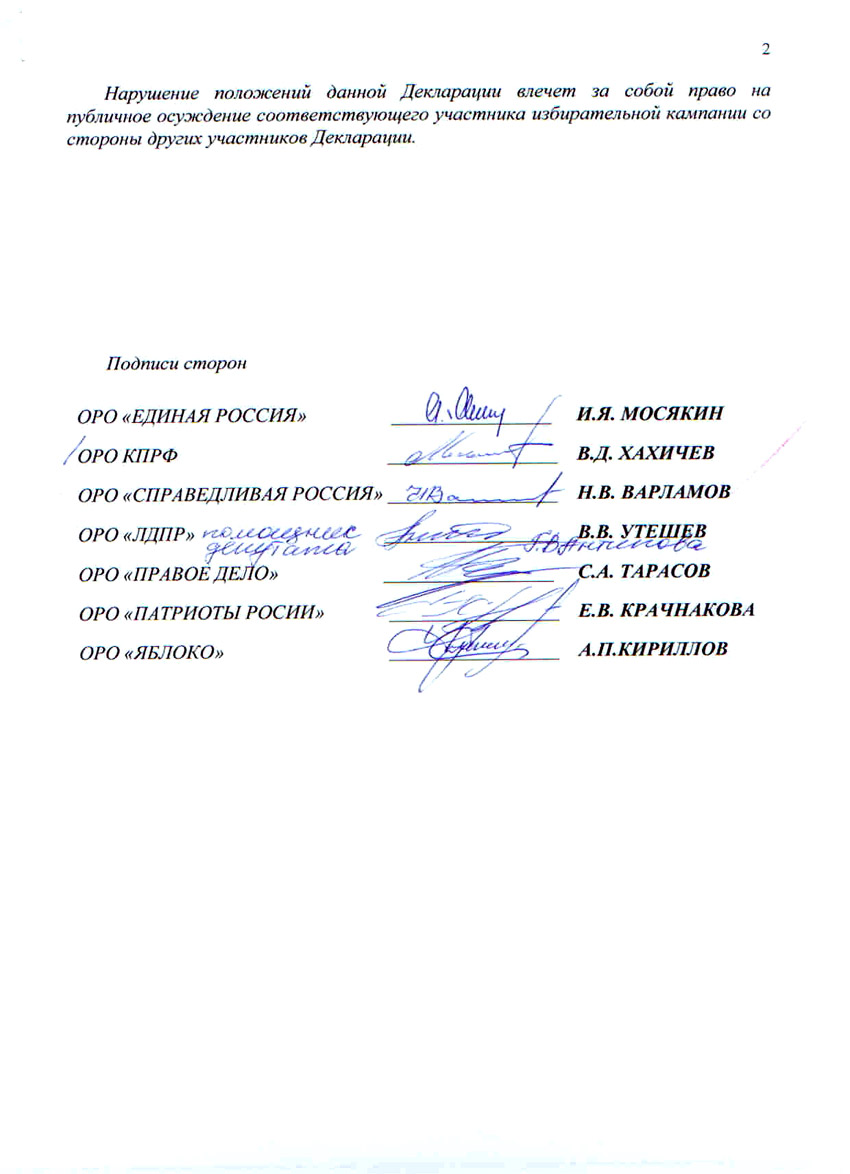 2
Нарушение положений данной Декларации влечет за собой право на
публичное осуждение соответствующего участника избирательной кампании со
стороны других участников Декларации.
Подписи сторон
ОРО «ЕДИНАЯ РОССИЯ» И.Я. МОСЯКИН
ОРО КПРФ В.Д. ХАХИЧЕВ
ОРО «СПРАВЕДЛИВАЯ РОССИЯ» Н.В. ВАРЛАМОВ
ОРО «ЛДПР» помощник В.В. УТЕШЕВ
депутата Г.В. Антипова
ОРО «ПРАВОЕ ДЕЛО» С.А. ТАРАСОВ
ОРО «ПАТРИОТЫ РОСИИ» Е.В. КРАЧНАКОВА
ОРО «ЯБЛОКО» А.П.КИРИЛЛОВ